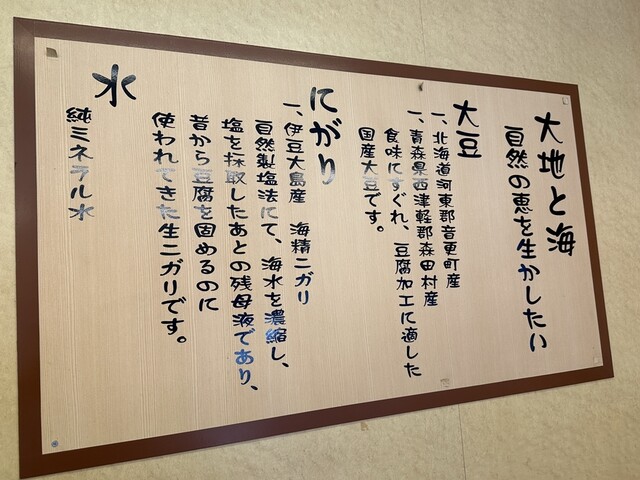 大地と海
自然の恵を生かしたい
大豆
一、北海道河東郡音更町産
一、青森県西津軽郡森田村産
食味にすぐれ、豆腐加工に適した
国産大豆です。
にがり
一、伊豆大島産　海精ニガリ
自然製塩法にて、海水を濃縮し、
塩を採取したあとの残母液であり、
昔から豆腐を固めるのに
使われてきた生ニガリです。
水
純ミネラル水